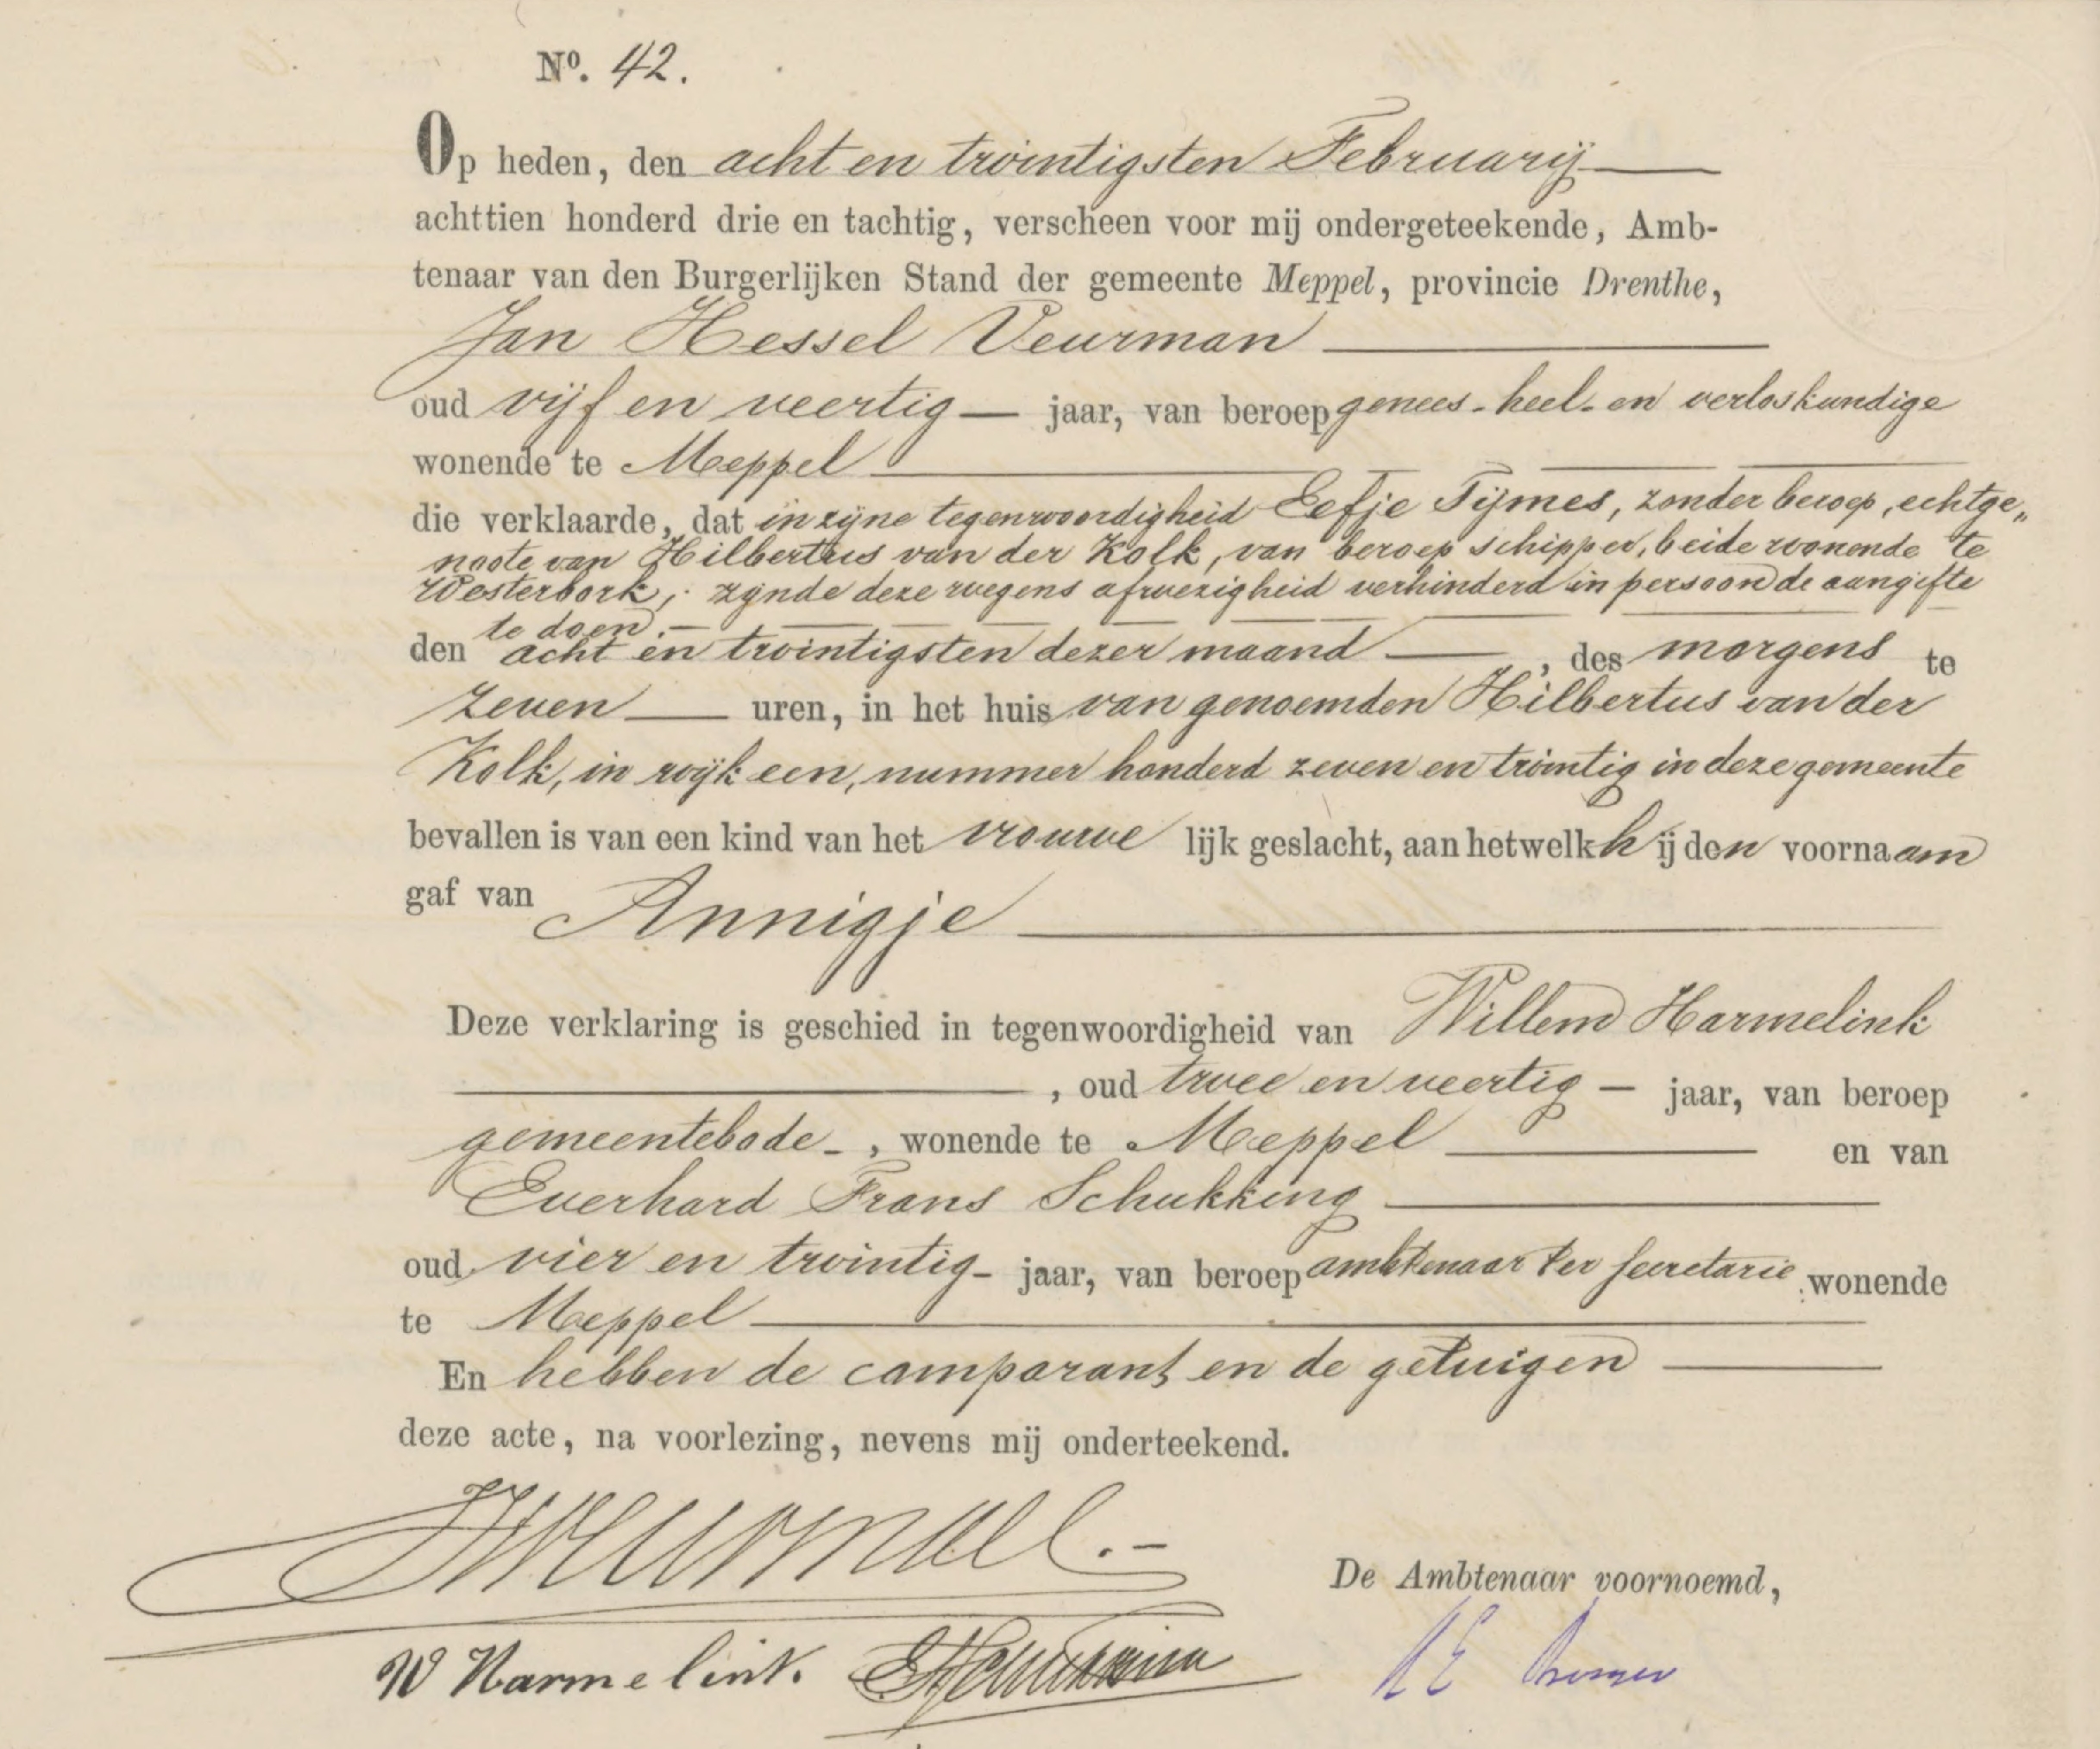 Nº. 42.
Op heden, den acht en twintigsten Februarij
achttien honderd drie en tachtig, verscheen voor mij ondergeteekende, Amb-
tenaar van den Burgerlijken Stand der gemeente Meppel, provincie Drenthe,
Jan Hessel Veurman
oud vijf en veertig — jaar, van beroep genees-heel-en verloskundige
wonende te Meppel
die verklaarde, dat in zijne tegenwoordigheid Eefje Tijmes, zonder beroep, echtge„
noote van Hilbertus van der Kolk, van beroep schipper, beide wonende te
Westerbork, zijnde deze wegens afwezigheid verhinderd in persoon de aangifte
te doen. —
den acht en twintigsten dezer maand —, des morgens te
zeven — uren, in het huis van genoemden Hilbertus van der
Kolk, in wijk een, nummer honderd zeven en twintig in deze gemeente
bevallen is van een kind van het vrouwe lijk geslacht, aan hetwelk hij den voornaam
gaf van Annigje
Deze verklaring is geschied in tegenwoordigheid van Willem Harmelink
, oud twee en veertig — jaar, van beroep
gemeentebode -, wonende te Meppel — en van
Everhard Frans Schukking
oud vier en twintig - jaar, van beroep ambtenaar ter secretarie wonende
te Meppel
En hebben de comparant en de getuigen
deze acte, na voorlezing, nevens mij onderteekend.
JHVeurman.-
De Ambtenaar voornoemd,
W Harmelink. EFSchukking